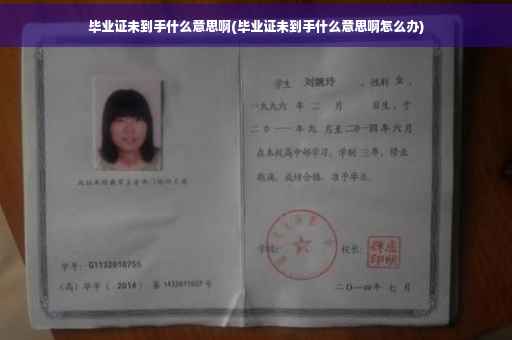 毕业证未到手什么意思啊(毕业证未到手什么意思啊怎么办)
学生 刘婉玲 ,性别 女 ,
一九九六 年 二 月 日生,于
二0一一 年 九 月至 二0一四 年 六 月
在本校高中部学习,学制 三 年,修业
期满,成绩合格,准予毕业。
学号: G1132010755
(高)毕字( 2014 )第 1432011027 号
学校:
校长:
二〇一四年 七 月